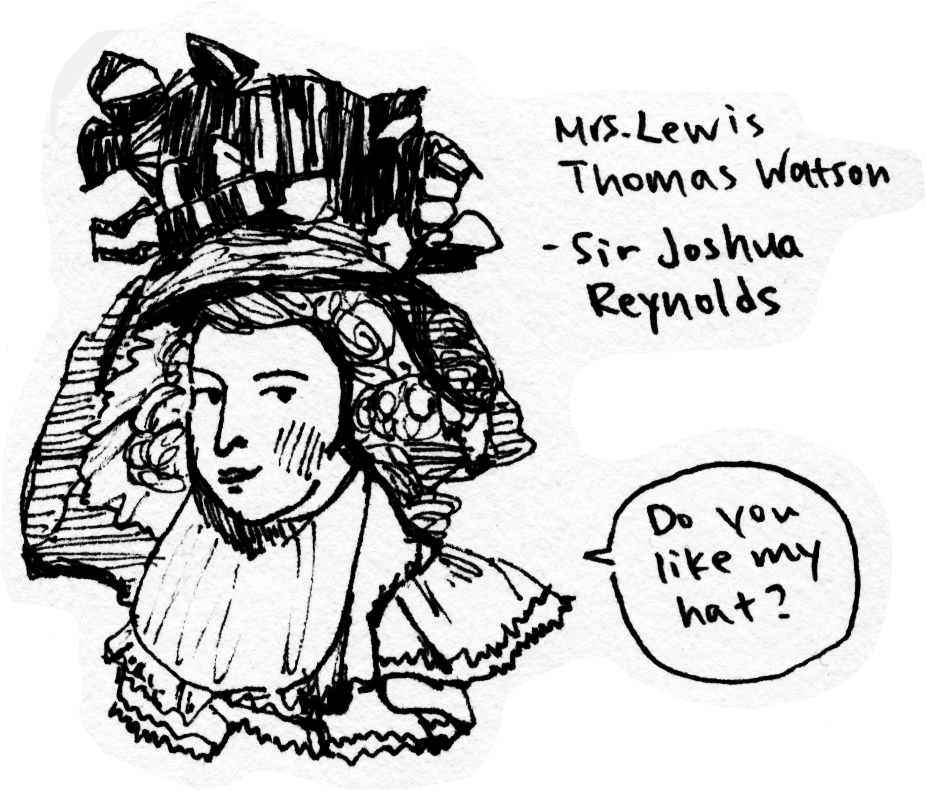 Mrs. Lewis
Thomas Watson
- Sir Joshua
Reynolds
Do you
like my
hat?